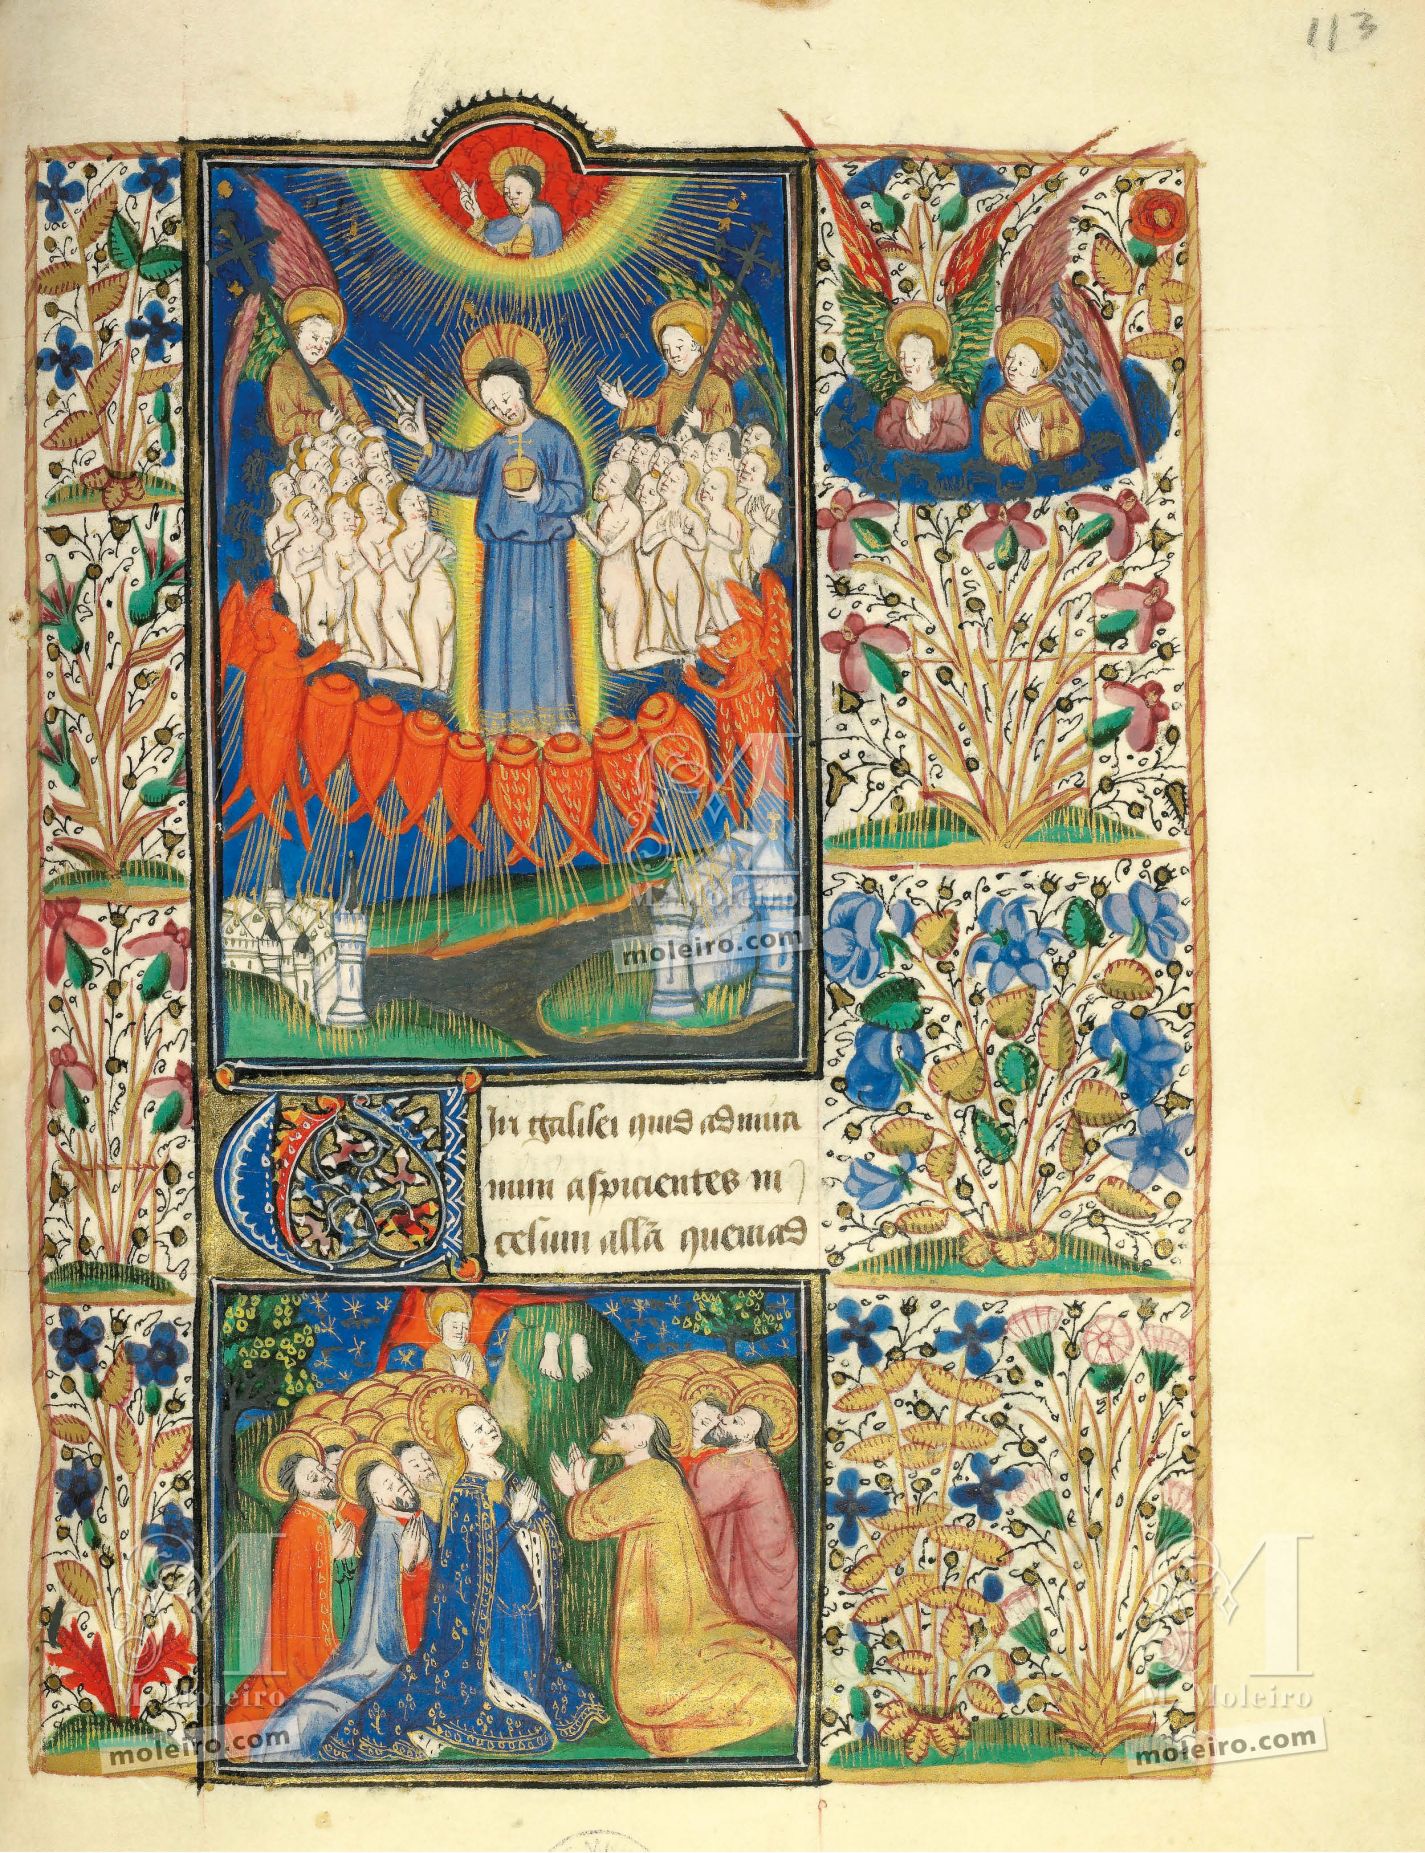 113
Uiri galilei quid admira
mini aspicientes in
celum allã quemad
M. Moleiro
moleiro.com
M. Moleiro
moleiro.com
M. Moleiro
moleiro.com